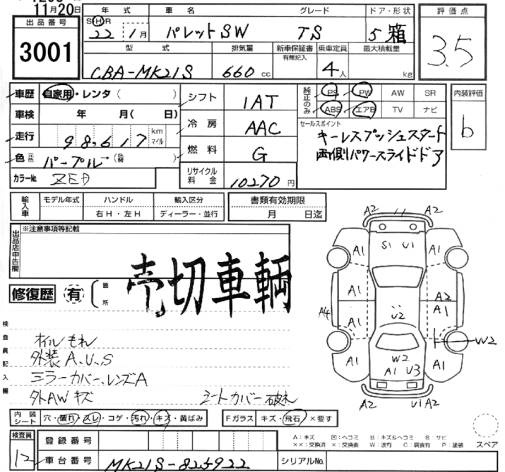 11月20日
出品番号
3001
年式 車名 グレード ドア・形状
SHR 22 1月 パレットSW TS 5 箱
型式 排気量 新車保証書 乗車定員 最大積載量
有無記入
CBA-MK21S 660cc 4人 kg
評価点
3.5
車歴 自家用・レンタ( )
車検 年 月( 日)
走行 98,617 km マイル
色 パープル
カラーNo. ZED
シフト 1AT
冷房 AAC
燃料 G
リサイクル料金 10270円
純正のみ
PS PW AW SR
ABS エアB TV ナビ
内装評価
b
セールスポイント
キーレスプッシュスタート
両側パワースライドドア
輸入車
モデル年式 ハンドル 輸入区分
右H・左H ディーラー・並行
書類有効期限
月 日迄
出品店申告欄
※注意事項等記載
修復歴 有 箇所
売切車輌
検査員記入欄
オイルもれ
外装A.U.S
ミラーカバー、レンズA
外AWキズ シートカバー破れ
A2 A2
S1 U1
A1 A1
A1 A1
A4 U2 A1
A1 A1
W2
W2
A1 U3
A2 A2
内装シート 穴・擦れ・スレ・コゲ・汚れ・キズ・黄ばみ
Fガラス キズ・飛石・×要す
スペア
検査員
12
登録番号
車台番号 MK21S-825922
シリアルNo.
A:キズ U:凹ヘコミ B:キズ&ヘコミ W:波打 C:腐食有 P:塗装